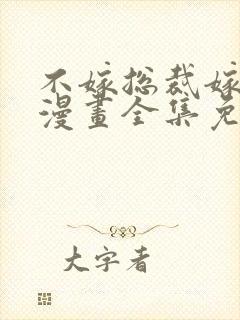 不嫁总裁嫁
漫畫全集免
大字者